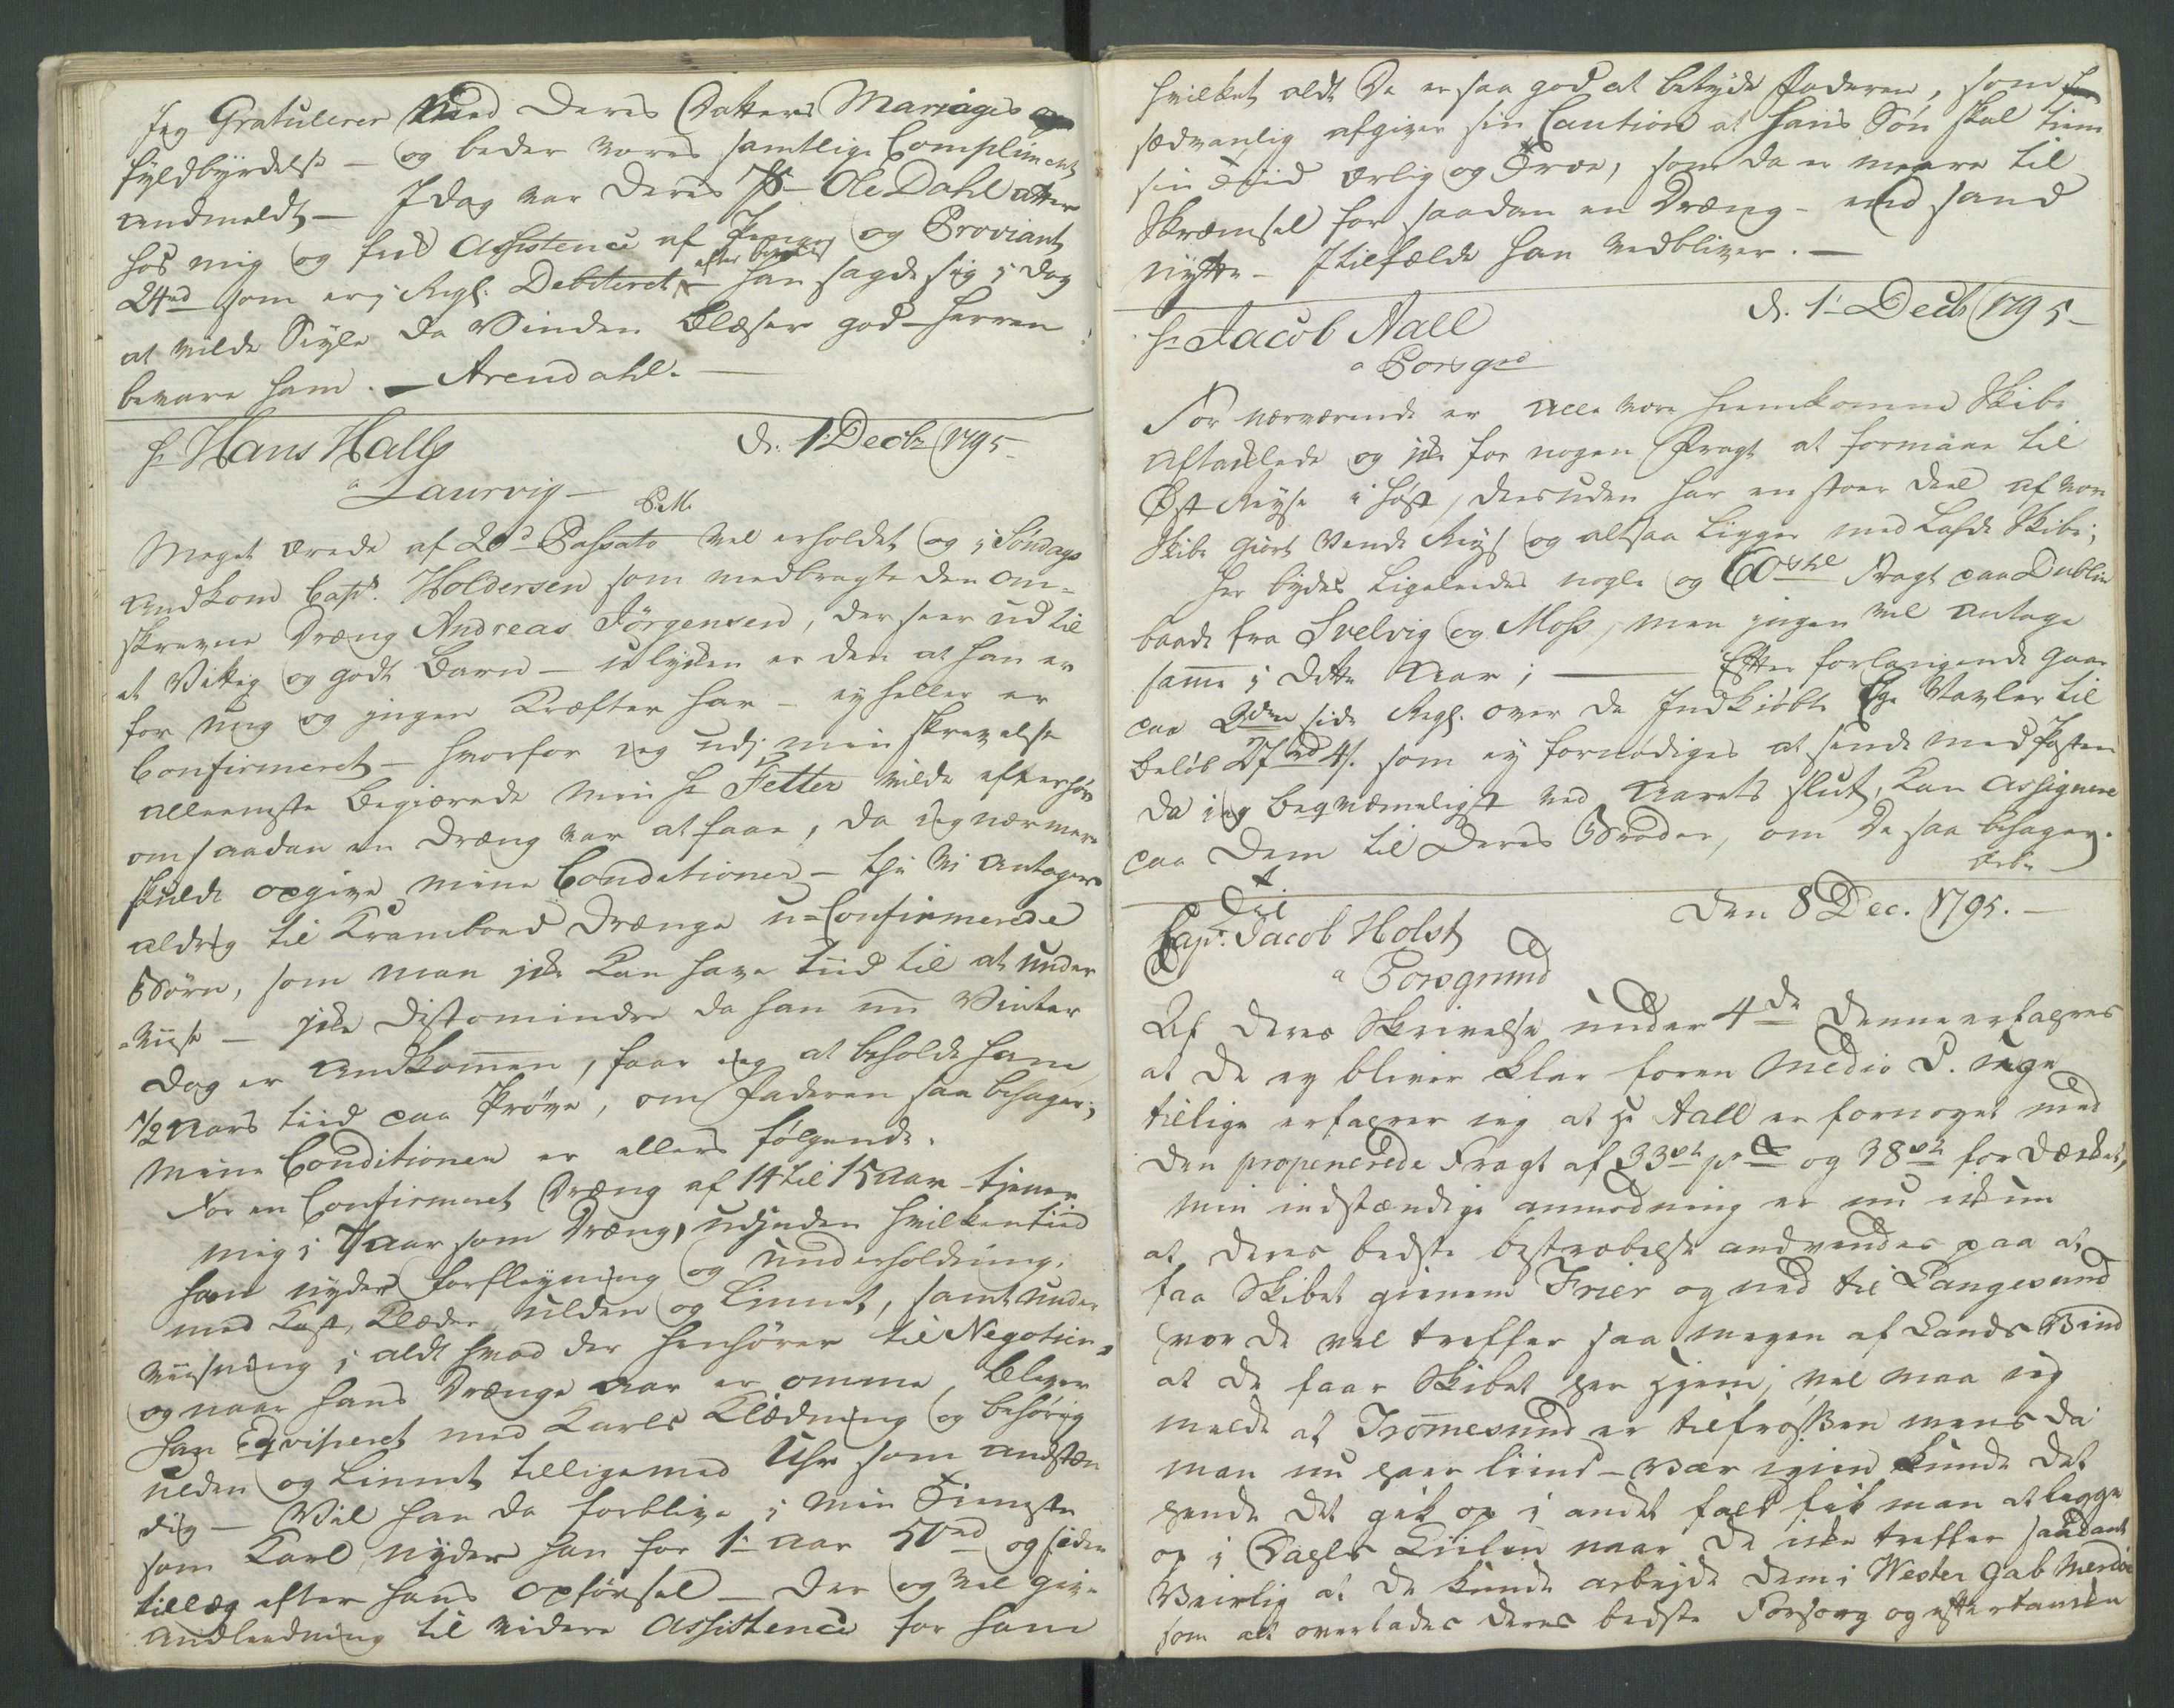 Jeg Gratulerer Med Deres Datters Mariages
fyldbyrdelse – og beder vores samtlige Compliment
andmeldt – J dag var Deres Ole Dahl atter
hos mig og fik Assistence af Penger og Proviant
efter
24rd som er i Regl. Debiteret – han sagde sig i dag
at vilde Seyle da Vinden blæser god – Herren
bevare ham. – Arendahl. –
Hr Hans Halls d. 1 Decbr 1795
a Laurvig –
P.M.
Meget ærede af 20d Passato vel erholdet og i Søndags
andkom Capt. Holdersen som medbragte den om=
skrevne Dræng Andreas Jørgensen, der seer ud til
et Vittig og godt Barn – ulyken er den at han er
for ung og ingen Kræfter har – ey heller er
Confirmeret – hvorfor jeg udi min skrevelse
alleeneste begiærede min Hr Fetter vilde efterhøre
om saadan en Dræng var at faae, da jeg nærmere
skulde opgive mine Conditioner – thi vi antager
aldrig til Kramboed Drænge u=Confirmerede
Børn, som man ike kan have tiid til at under
=viise – ike distomindre da han nu Vinter
dag er andkommen, faar jeg at beholde ham
1/2 Aars tiid paa Prøve, om Faderen saa behager;
mine Conditioner er ellers følgende.
For en Confirmeret Dræng af 14 til 15 Aar – tiener
mig i 7 Aar som Dræng, udj den hvilken tiid
han nyder forpleyning og underholdning
med Kost, Klæder, ulden og Linnet, samt under
viisning i aldt hvad der henhører til Negotien,
og naar hans Drænge aar er omme, bliver
han Eqviperet med Karls Klædning og behørig
ulden og Linnet tilligemed Uhr som anstæn
dig – Vil han da forblive i min Tieneste
som Karl nyder han for 1 aar 50rd og siden
tillæg efter hans opførsel – Der og vel give
andleedning til videre Assistence for ham
hvilket aldt De er saa god at betyde Faderen, som
sædvanlig afgiver sin Caution at hans Søn skal tiene
sin Tiid ærlig og troe, som da er meere til
Skræmsel for saadan en Dræng – end sand
nytte – J tilfælde han vedbliver. –
Hr Jacob Aall d. 1 Decb 1795 –
a Porsgrd
For nærværende er alle vore hiemkomne Skibe
aftaklede og ike for nogen Fragt at formaae til
Øst Reyse i høst, desuden har en stoer deel af vore
Skibe giort Vende Reys og altsaa Ligger med Laste Skibe;
her bydes Ligeleedes nogle og 60 Fragt paa Dublin
baade fra Svelvig og Moss, men ingen vil antage
samme i dette Aar; – Efter forlangende gaar
paa 2den side Regl. over de Indkiøbte Ege Stavler til
beløb 27rd 4s. som ey fornødiges at sende med Posten
da jeg beqvæmeligst ved Aarets slut, kan Assignere
paa Dem til Deres Broder, om De saa behager.
Til
Capt. Jacob Holst Den 8 Dec. 1795. –
a Porsgrund
Af Deres Skrivelse under 4de Denne erfares
at De ey bliver klar foren Medio D. uge
tillige erfarer jeg at Hr Aall er fornøyet med
den propenerede Fragt af 33 og 38 for Dækket,
min indstændige anmodning er nu ikun
at Deres bedste bestræbelse andvendes paa at
faa Skibet giennem Frier og ned til Langesund
hvor De vel treffer saa megen af Lands Vind
at De faar Skibet her hiem, vel maa jeg
melde at Tromesund er tilfrossen mens da
man nu har liind – Vær igien kunde det
hende det gik op i andet fald fik man at legge
op i Kiilen naar De ike treffer saadant
Veirlig at De kunde arbejde dem i Wester Gab Merdøe
som alt overlades Deres bedste Forsorg og eftertanke